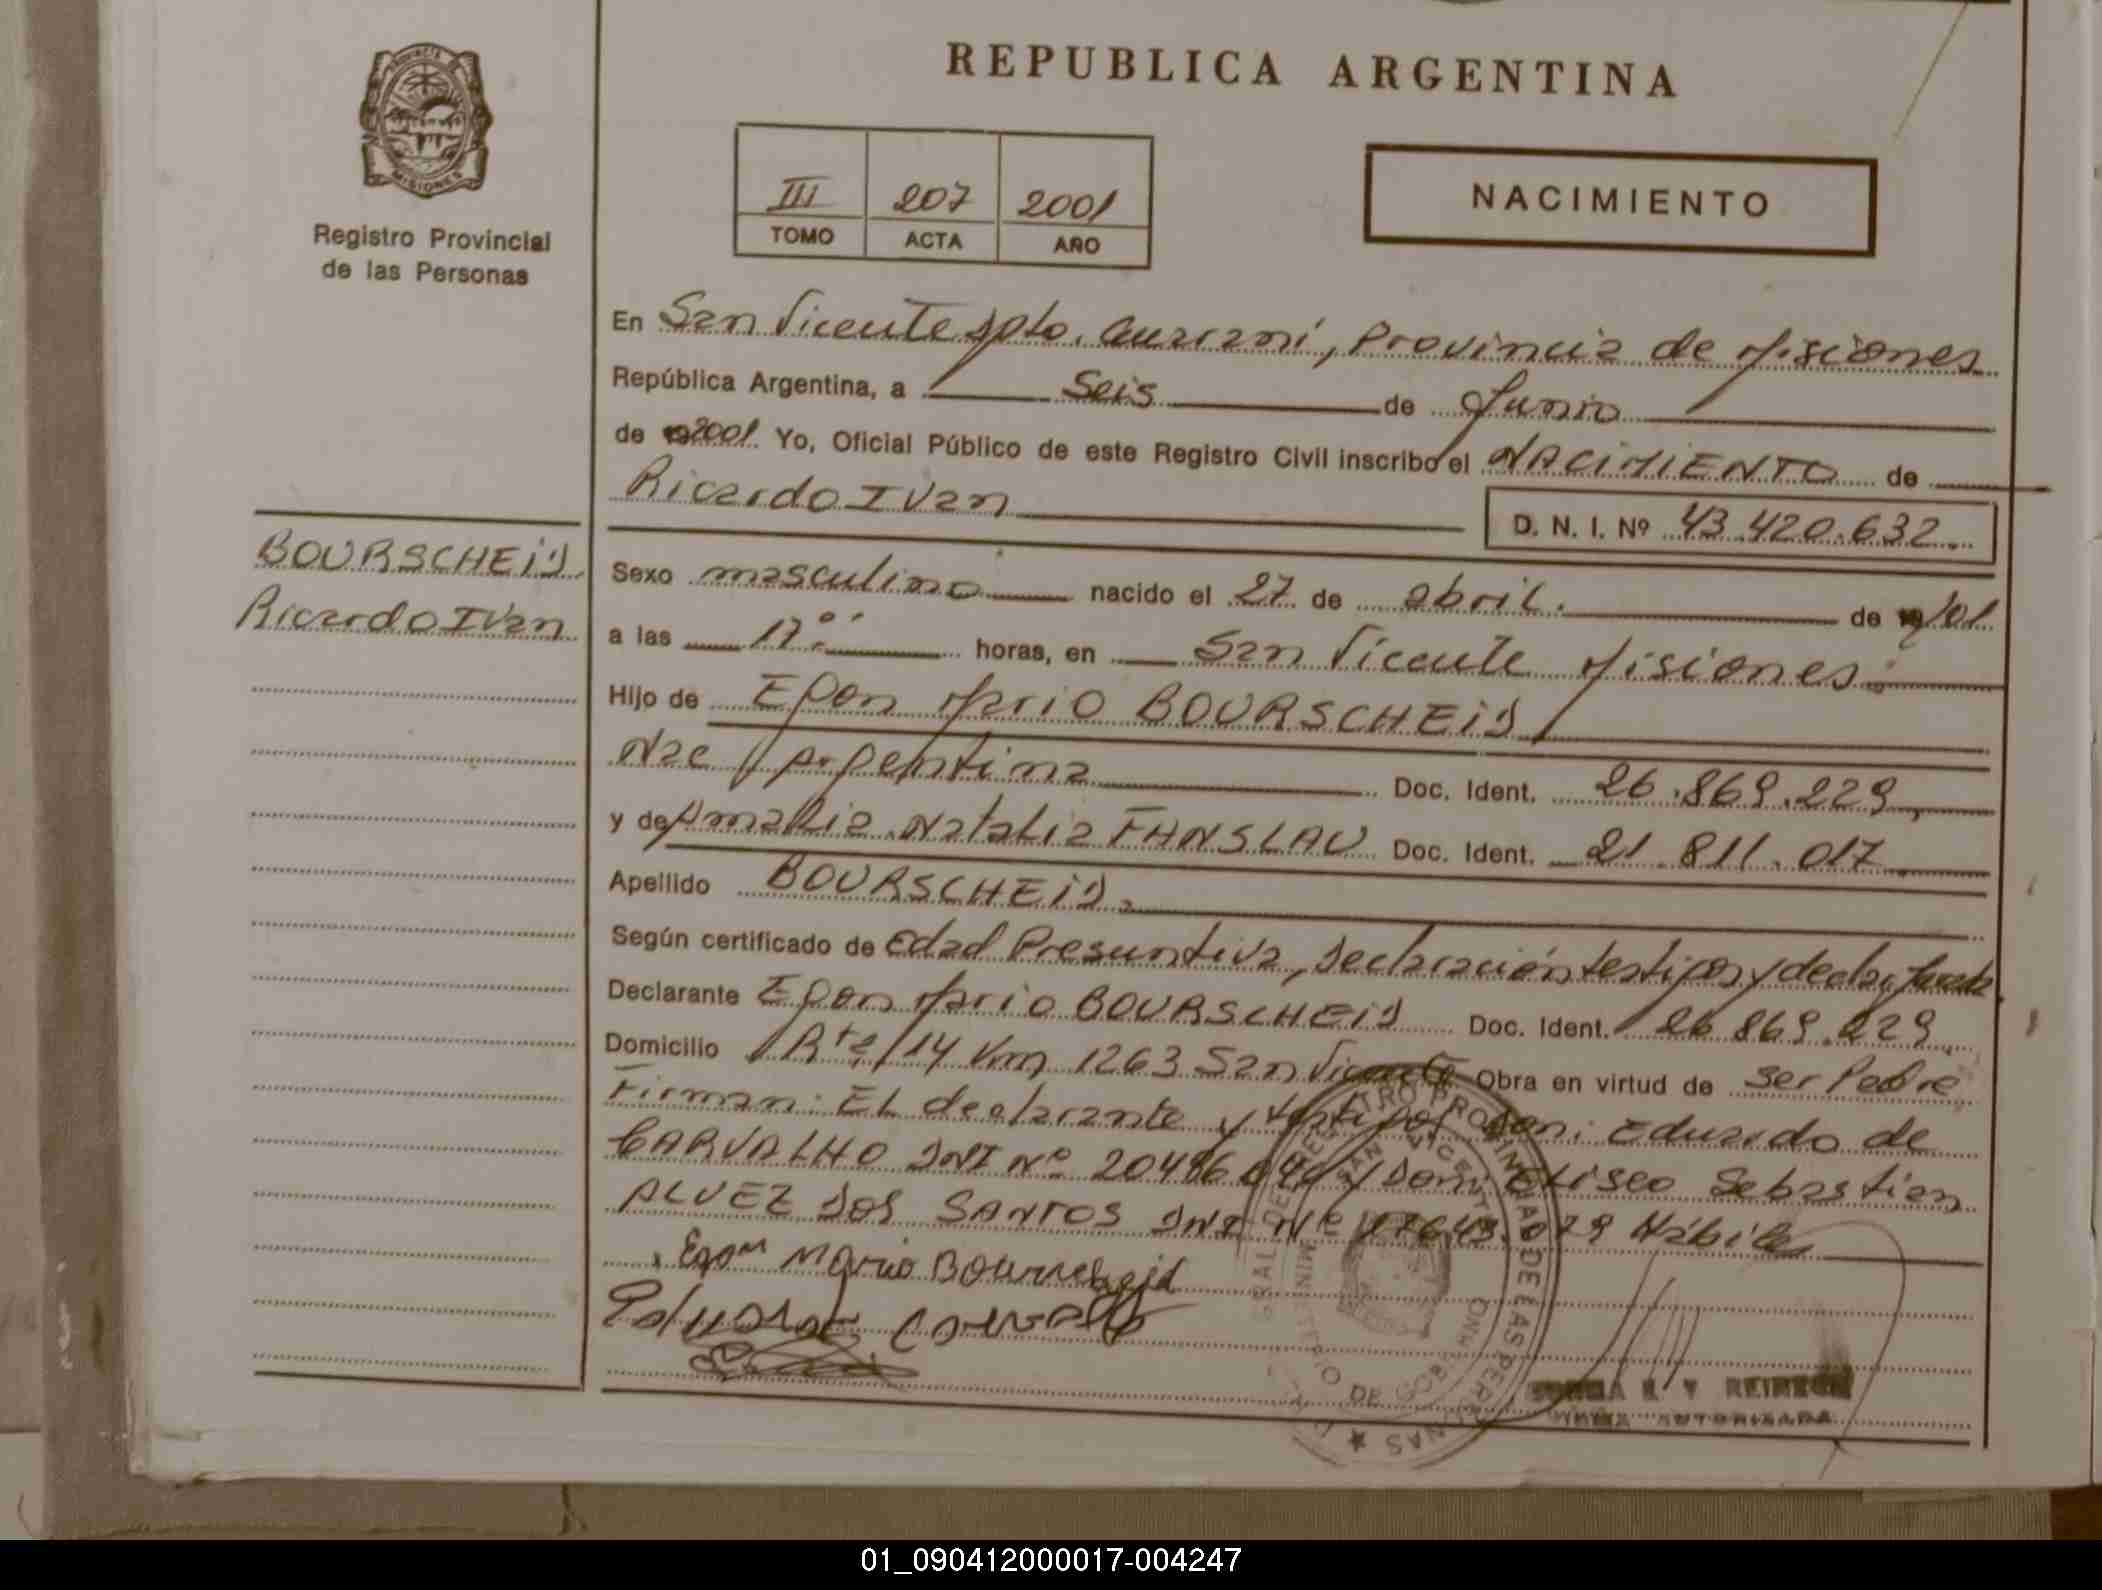 REPUBLICA ARGENTINA
PROVINCIA DE
MISIONES
Registro Provincial
de las Personas
III 207 2001
TOMO ACTA AÑO
NACIMIENTO
En San Vicente Dpto. Guaraní, Provincia de Misiones
República Argentina, a Seis de Junio
de 2001 Yo, Oficial Público de este Registro Civil inscribo el NACIMIENTO de
Ricardo Ivan
D. N. I. Nº 43.420.632.
BOURSCHEID,
Ricardo Ivan
Sexo masculino nacido el 27 de abril. de /01
a las 17 horas, en San Vicente Misiones.
Hijo de Egon Mario BOURSCHEID
Nac Argentina Doc. Ident. 26.869.229
y de Amalia Natalia FANSLAU Doc. Ident. 21.811.017
Apellido BOURSCHEID.
Según certificado de Edad Presuntiva, declaración testigos y declar jurada
Declarante Egon Mario BOURSCHEID Doc. Ident. 26.869.229
Domicilio Rta/14 Km 1263 San Vicente Obra en virtud de ser Padre
Firman: EL declarante y testigos Don: Eduardo de
CARVALHO DNI Nº y Don: Eliseo Sebastian
ALVEZ DOS SANTOS DNI Nº Hábiles
Egon Mario Bourscheid
Eduardo Carvalho
FIRMA AUTORIZADA
01_090412000017-004247